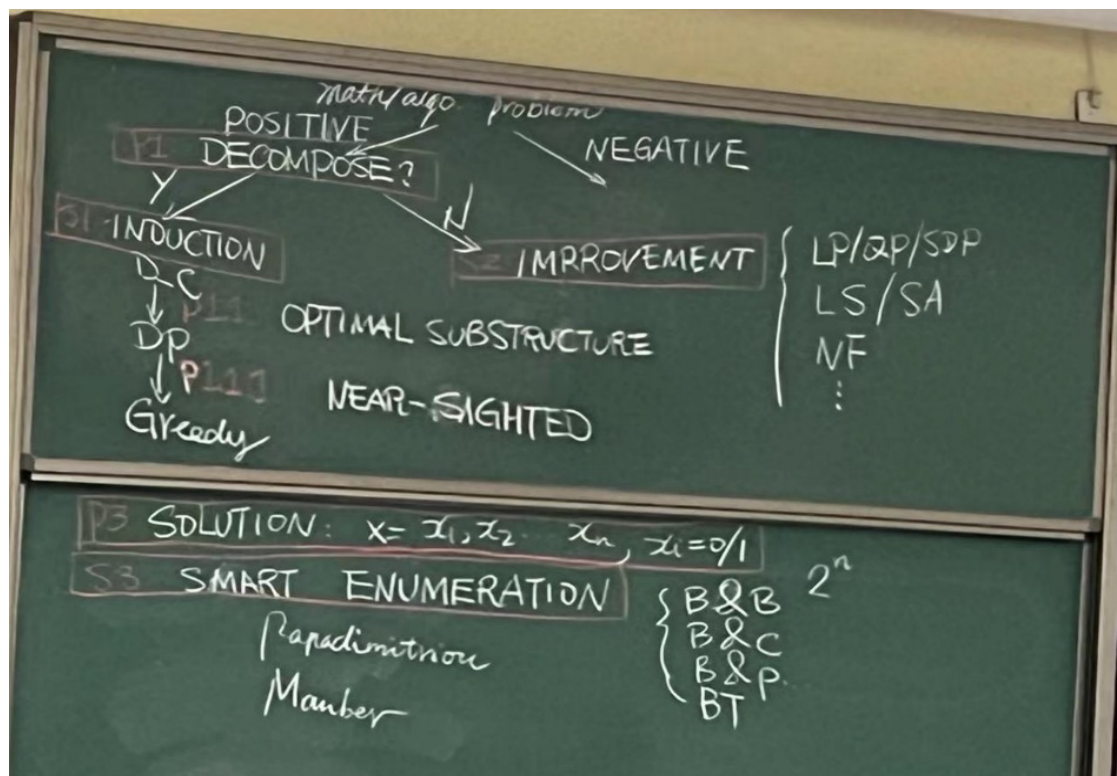 math/algo problem
POSITIVE
NEGATIVE
P1 DECOMPOSE?
Y
N
S1 INDUCTION
S2 IMPROVEMENT
LP/QP/SDP
D-C
LS/SA
P11
OPTIMAL SUBSTRUCTURE
DP
NF
P111
NEAR-SIGHTED
⋮
Greedy
P3 SOLUTION: X= x₁,x₂.. xₙ, xᵢ=0/1
S3 SMART ENUMERATION
B&B 2ⁿ
B&C
Papadimitriou
B&P.
Manber
BT